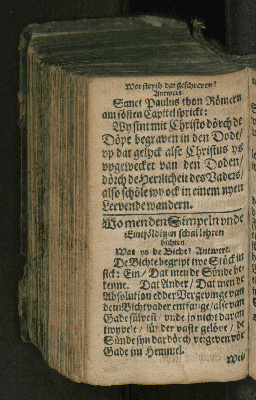 Wor steyth dat geschreven?
Antwert.
Sanct Paulus thon Römern
am sösten Capitel sprickt:
Wy sint mit Christo dörch de
Döpe begraven in den Dodt/
up dat gelyck alse Christus ys
upgewecket van den Doden/
dörch de Herrlicheit des Vaders/
also schöle wy ock in einem nyen
Levende wandern.
Wo men den Simpeln unde
Einföldigen schal lehren
bichten.
Wat ys de Bicht? Antwert.
De Bichte begript twe Stück in
sick: Ein/ Dat men de Sünde be-
kenne. Dat Ander/ Dat men de
Absolution edder Vergevinge van
dem Bichtvader entfange/ alse van
Gade sülvest/ unde jo nicht daran
twyvele/ sünder vaste gelöve/ de
Sünde syn dardörch vergeven vör
Gade im Hemmel.